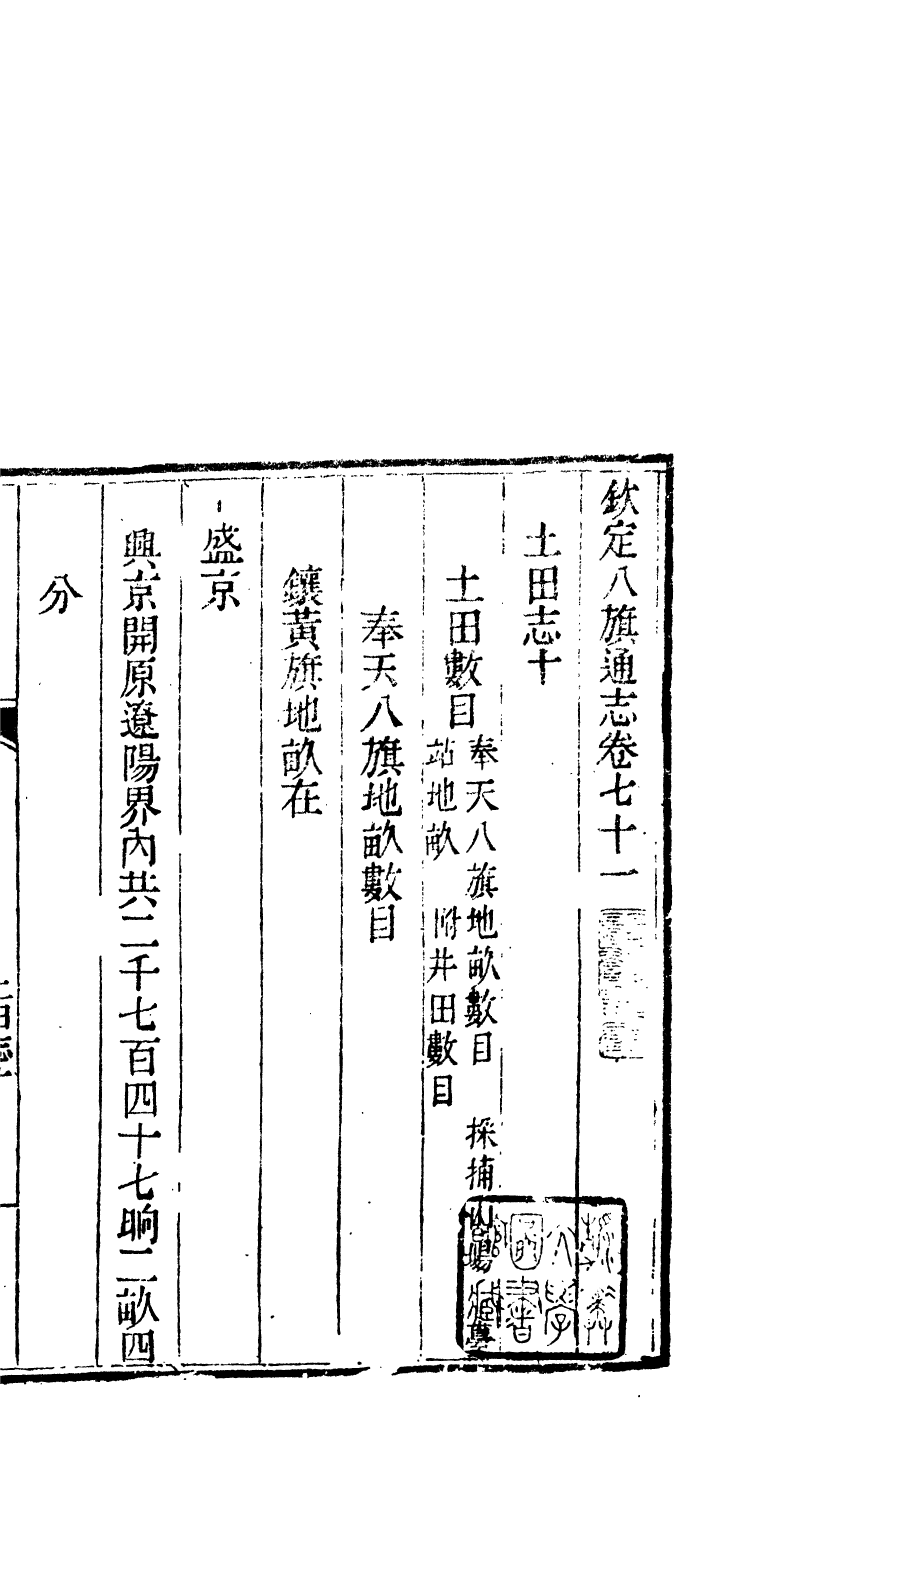 欽定八旗通志卷七十一
土田志十
土田數目
奉天八旗地畝數目　採捕山場
站地畝　附井田數目
奉天八旗地畝數目
鑲黃旗地畝在
盛京
興京開原遼陽界內共二千七百四十七晌二畝四
分